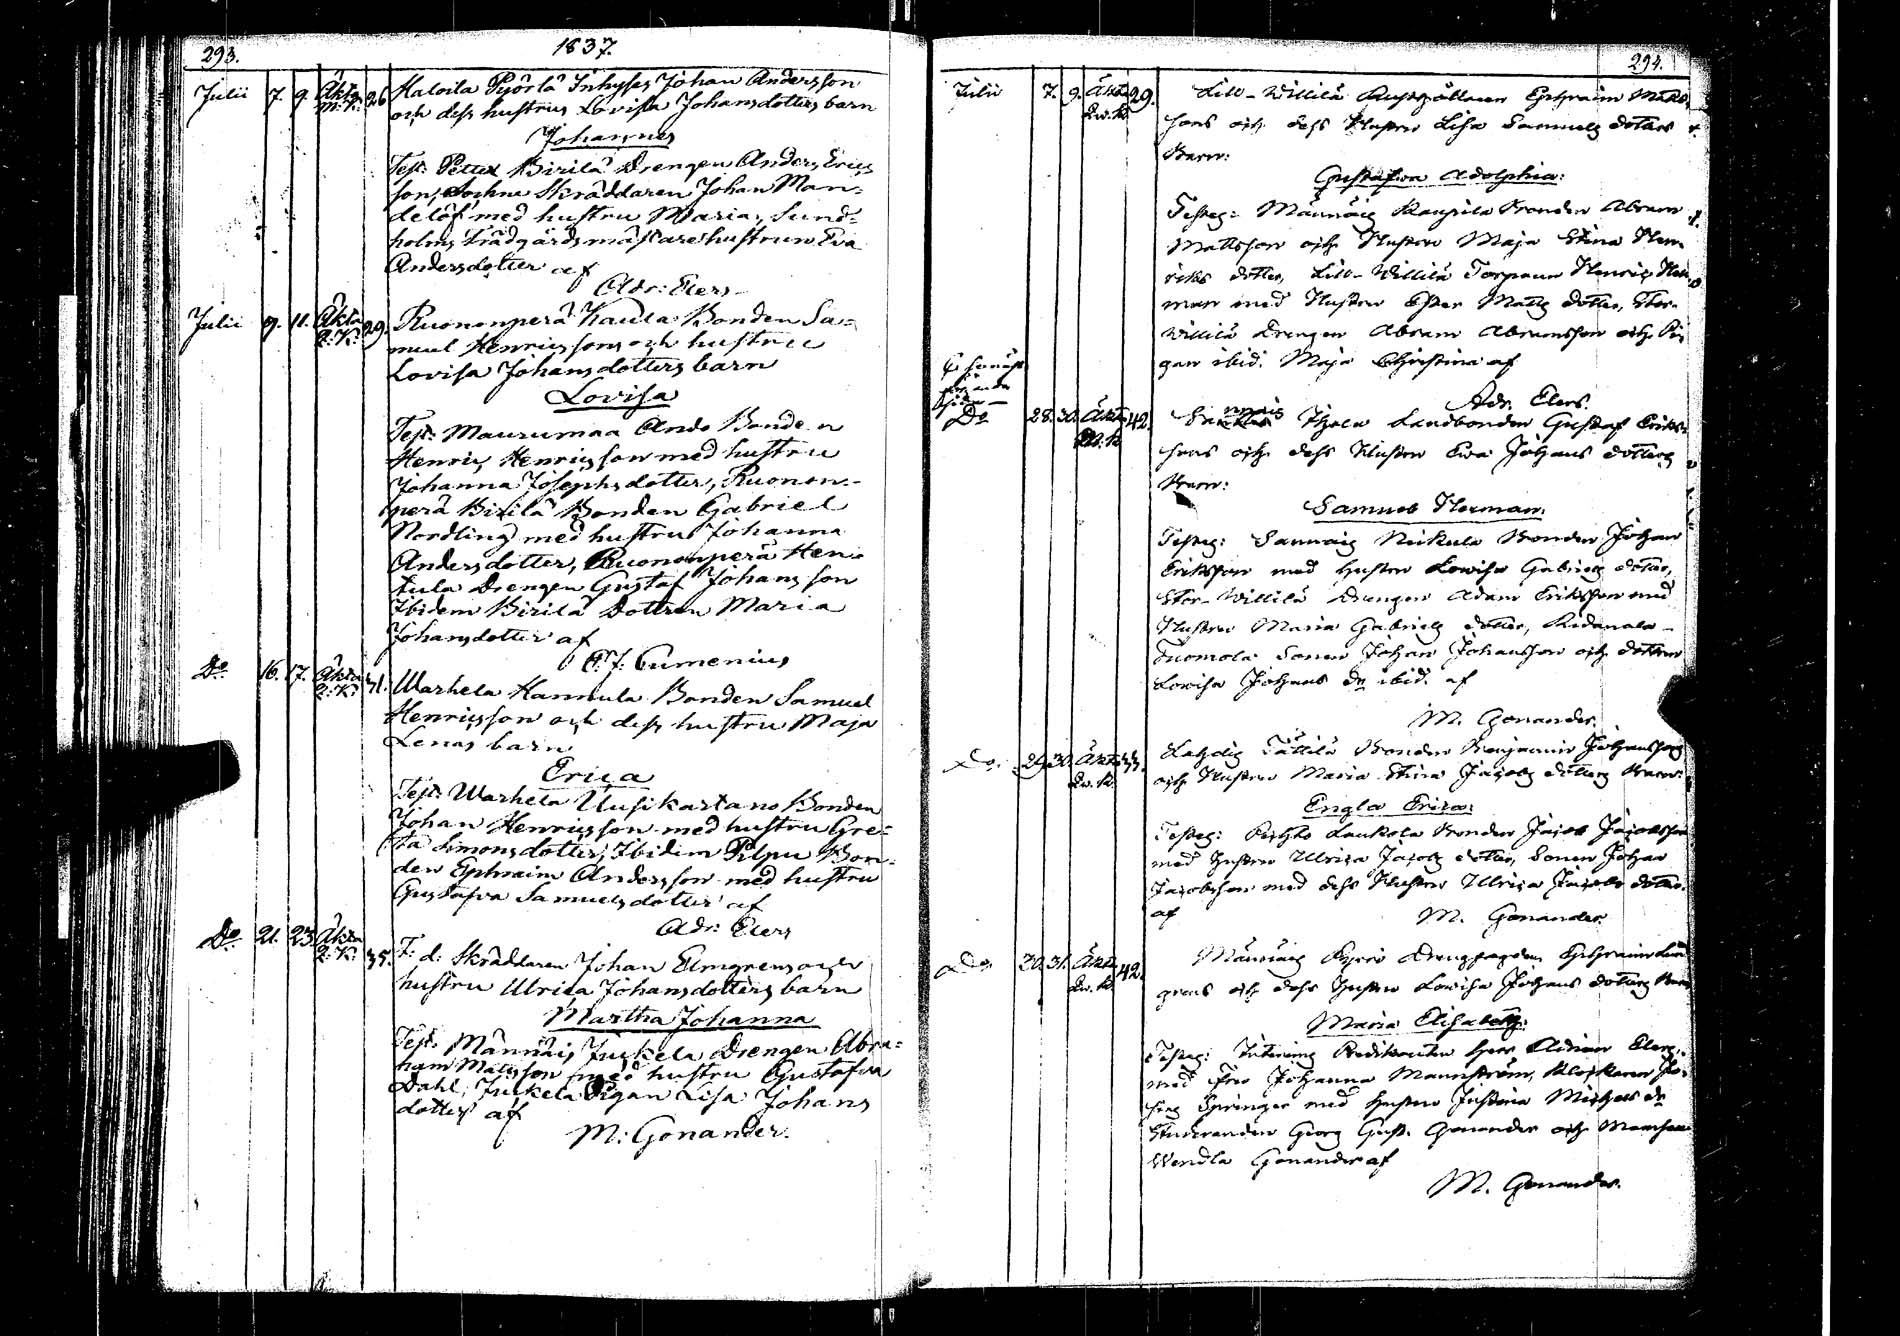 293.
1837.
Julii 7. 9. Äkta 26 Haloila Pyörlä Inhyses Johan Andersson
M:K: och dess hustrus Lovisa Johansdotters barn
Johannes
Test: Petter Birilä Drengen Anders Erics
son, Sockne Skräddaren Johan Man=
delöf med hustru Maria, Sund=
holms Trädgårdsmästarehustrun Eva
Andersdotter af
Adr: Elers
Julii 9. 11. Äkta 29. Ruononperä Kaula Bonden Sa=
Q:K: muel Henricssons och hustru
Lovisa Johansdotters barn
Lovisa
Test: Maurumaa Ando Bonden
Henric Henricsson med hustru
Johanna Josephsdotter, Ruonon=
perä Birilä Bonden Gabriel
Nordling med hustru Johanna
Andersdotter, Ruononperä Hen=
tula Drengen Gustaf Johansson
Ibidem Birilä Dottren Maria
Johansdotter af
Cumenius
Do 16. 17. Äkta 31. Warhela Hannula Bonden Samuel
Q:K: Henricsson och dess hustru Maja
Lenas barn
Erica
Test: Warhela Uusikartano Bonden
Johan Henricsson med hustru Gre=
ta Simonsdotter, Ibidem Pilpu Bon=
den Ephraim Andersson med hustru
Gustafva Samuelsdotter af
Adr: Elers
Do 21. 23. Äkta 35. F: d: Skräddaren Johan Elmgrens och
Q:K: hustru Ulrica Johansdotters barn
Martha Johanna
Test: Männäis Juckela Drengen Abra=
ham Matsson med hustru Gustafva
Dahl, Juckela Pigan Lisa Johans
dotter af
M: Gonander.
294.
Julii 7. 9. Äkta 29. Lill-Willilä Rusthållaren Ephraim Matts
Qv. K. sons och dess Hustru Lisa Samuels dotters
Barn:
Gustafva Adolphia:
Testes: Männäis Kaupila Bonden Abram
Mattsson och Hustru Maja Stina Hen
riks dotter, Lill-Willilä Torparen Henric
man med Hustru Ester Matts dotter, Stor-
Willilä Drengen Abram Abramsson och Pi
gan ibid. Maja Christina af
Adr. Elers.
Do 28. 30. Äkta 42. Sannais Landbonden Gustaf Eriks
M. K. sons och dess Hustru Eva Johans dotters
Barn:
Samuel Herman.
Testes: Sannais Nickula Bonden Johan
Eriksson med Hustru Lovisa Gabriels dotter,
Stor-Willilä Drengen Adam Eriksson med
Hustru Maria Gabriels dotter,
Tuomola Sonen Johan Johansson och dottren
Lovisa Johans dr ibid. af
M. Gonander.
Do. 29. 30. Äkta 33. Tättilä Bonden Benjamin Johanssons
Qv. K. och Hustru Maria Stina Jacobs dotters Barn:
Engla Erica:
Testes: Laukola Bonden Jacob Jacobsson
med Hustru Ulrica Jacobs dotter, Sonen Johan
Jacobsson med dess Hustru Ulrica Jacobs dotter.
af M. Gonander.
Do. 30. 31. Äkta 42. Männäis Ephraim
Qv. K. grens och dess Hustru Lovisa Johans dotters Barn
Maria Elisabeth:
Testes: Predikanten Herr Adrian Elers,
med Fru Johanna Mannström, Klockaren Jo
sep Springer med Hustru Justina Michels dr
Studeranden Georg Gust. Gonander och Mamsell
Wendla Gonander af
M. Gonander.